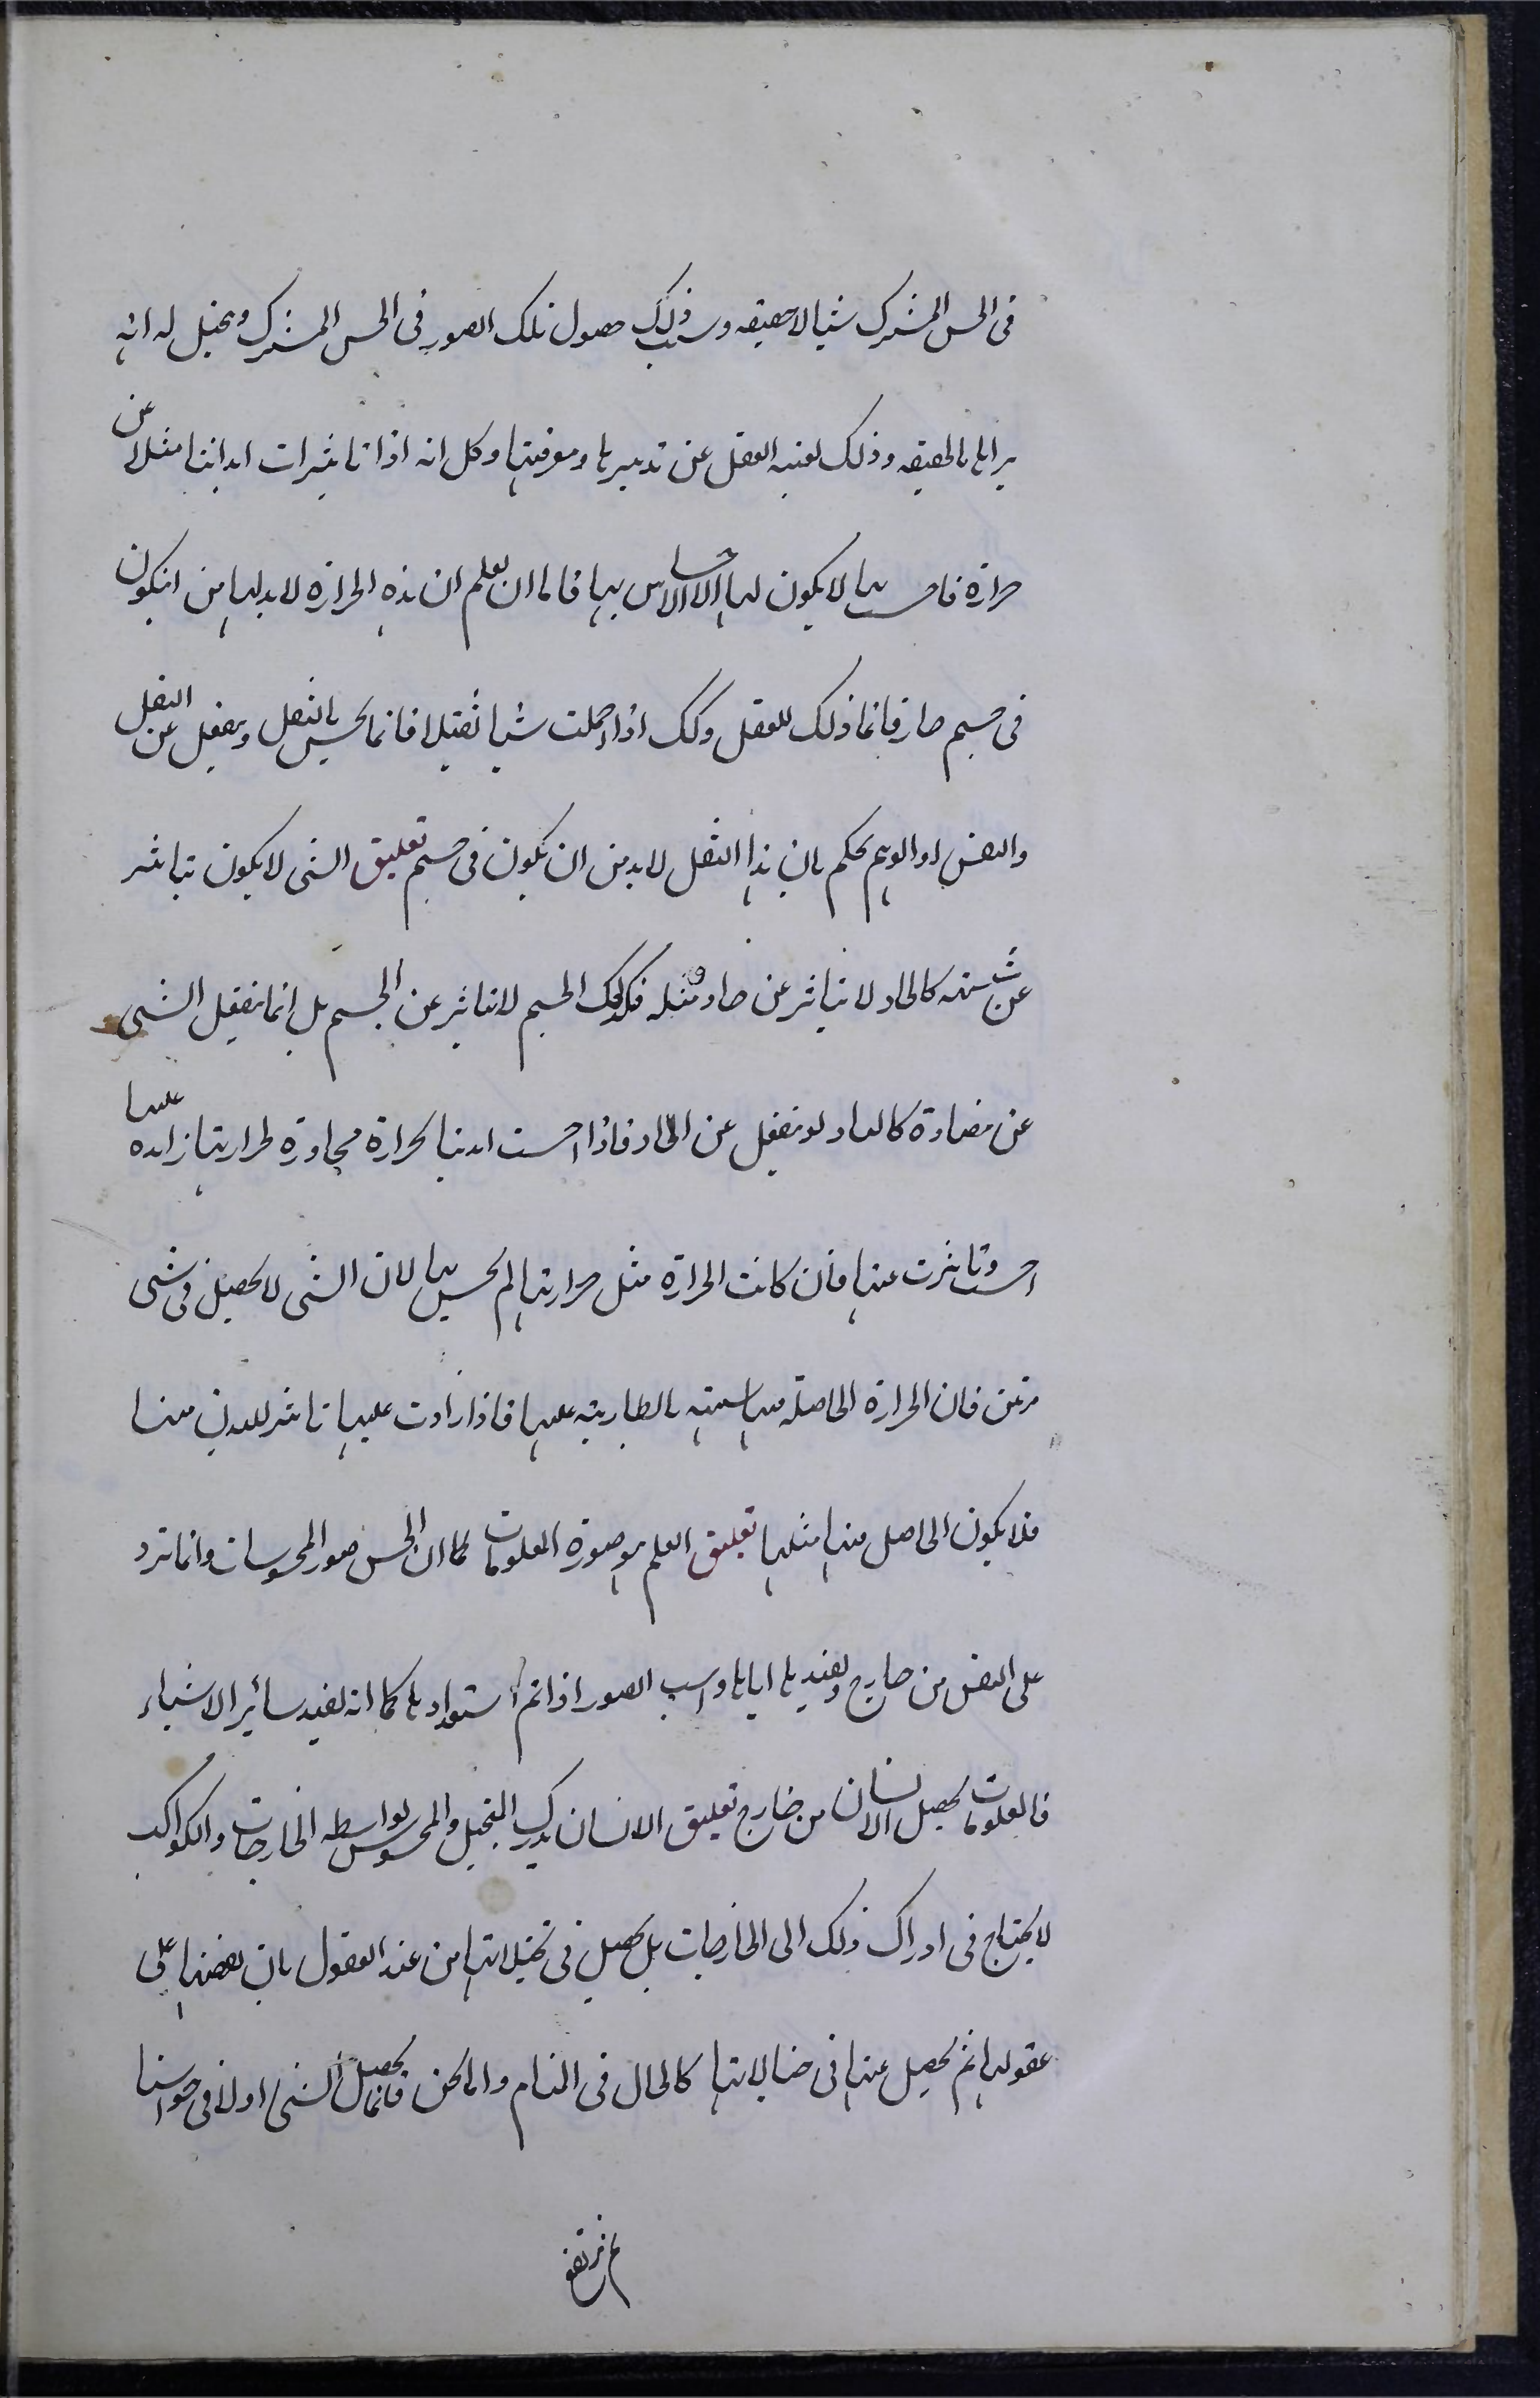 فى الحس المشترك شيا لاحقيقه وسبب ذلك حصول تلك الصور فى الحس المشترك ويخيل له انه
يراها بالحقيقه وذلك لغيبه العقل عن تدبيرها ومعرفتها وكل انه اذا تاثيرات ابداننا مثلا عن
حرارة فاحست بها لا يكون لها الا الاحساس بها فاما ان نعلم ان هذه الحرارة لابد لها من ان يكون
فى جسم حار فانما ذلك للعقل وكك اذا حملت شيا ثقيلا فانما يحس بالثقل وينفعل عن الثقل
والنفس او الوهم يحكم بان هذا الثقل لابد من ان يكون فى جسم تعليق الشى لا يكون يتاثر
عن شبيهه كالحار لا يتاثر عن حار مثله فكذلك الجسم لا يتاثر عن الجسم بل انما ينفعل الشى
عن مضادة كالبارد ينفعل عن الحار فاذا احست ابداننا بحرارة مجاورة لحرارتها زايده عليها
احست وتاثرت عنها فان كانت الحرارة مثل حرارتها لم يحس بها لان الشى لا يحصل فى شى
مرتين فان الحرارة الحاصلة فيها شبيهه بالطاريه عليها فاذا زادت عليها تاثر البدن منها
فلا يكون الحاصل منها مثلها تعليق العلم هو صورة المعلومات كما ان الحس صور المحسوسات وانما ترد
على النفس من خارج ويفيدها اياها واهب الصور اذا تم استعدادها كما انه يفيد سائر الاشياء
فالمعلومات يحصل الانسان من خارج تعليق الانسان يدرك المتخيل والمحسوس بواسطه الخارجات والكواكب
لا يحتاج فى ادراك ذلك الى الخارجات بل يحصل فى تخيلاتها من عند العقول بان يفضنها على
عقولها ثم يحصل عنها فى خيالاتها كالحال فى المنام واما نحن فانما يحصل الشى اولا فى حواسنا
ثم يرتقى